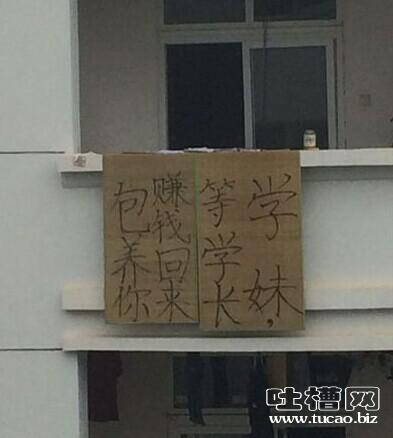 学妹,
等学长
赚钱回来
包养你
吐槽网
www.tucao.biz